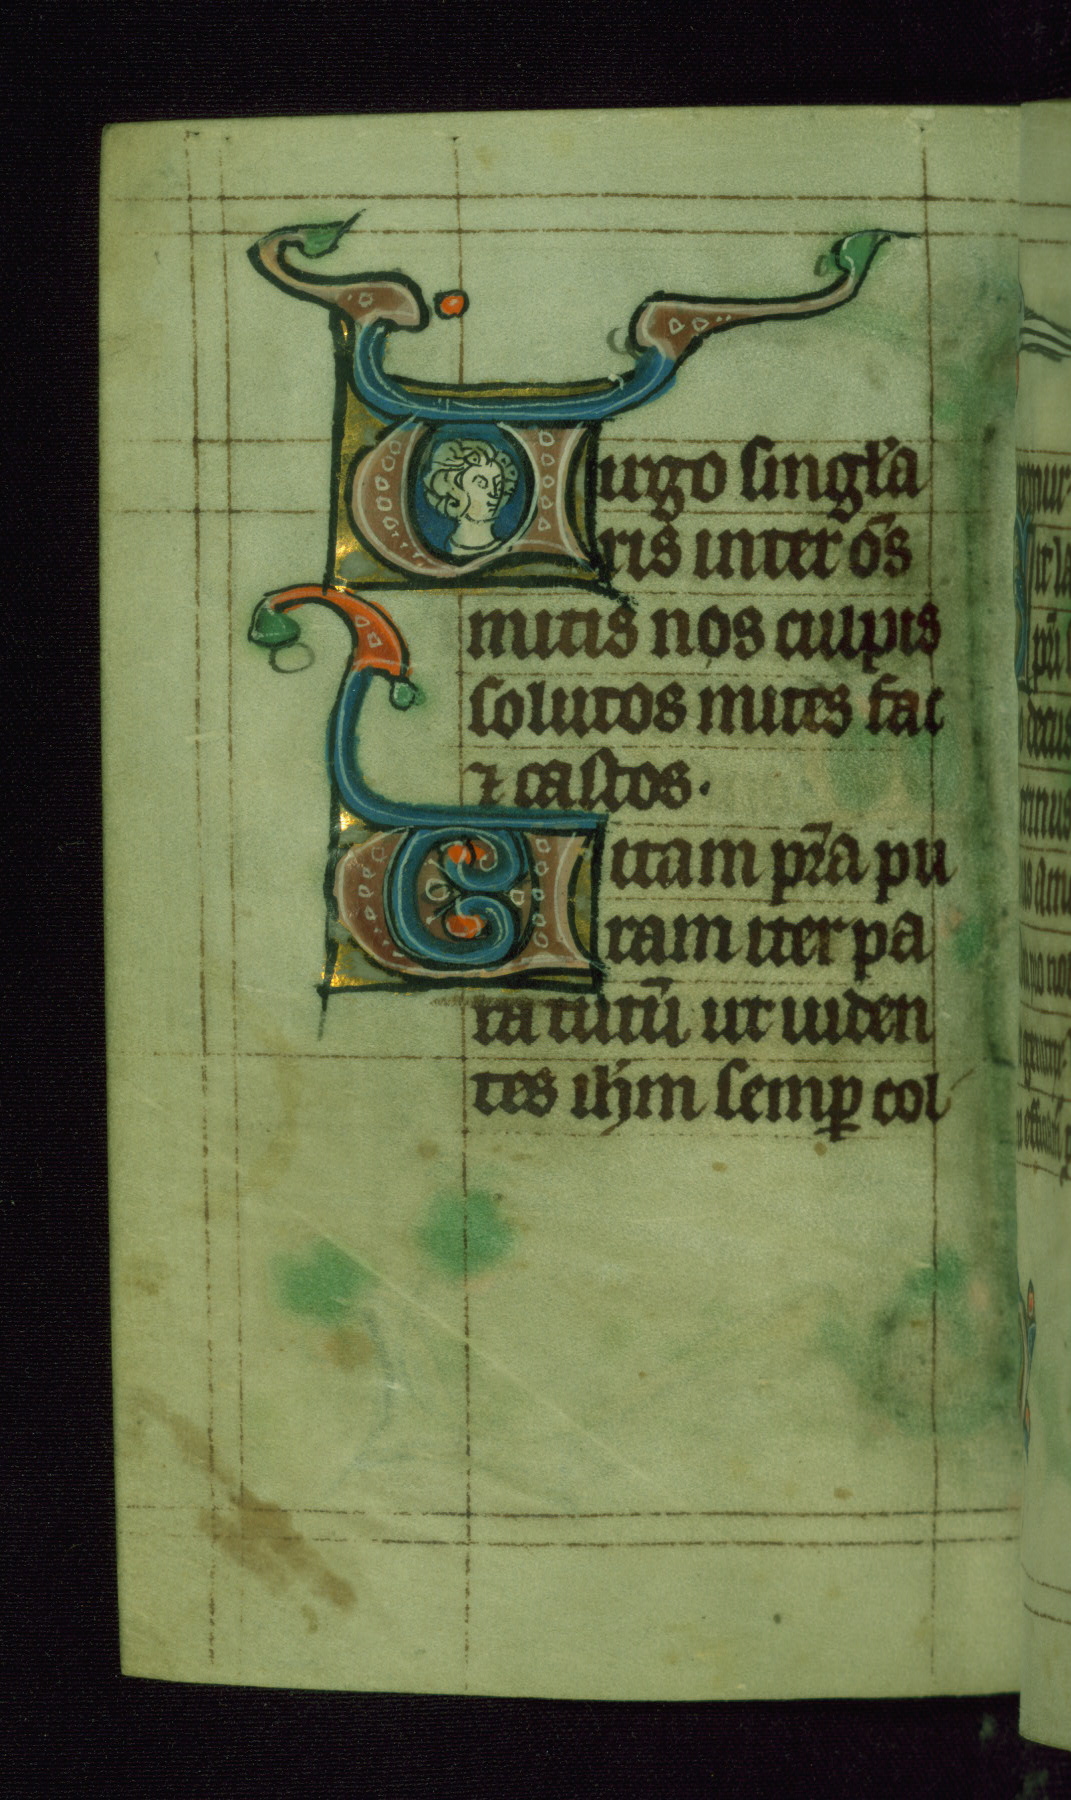 Uirgo singl̉a
ris inter o̅s
mitis nos culpis
solutos mites fac
⁊ castos.
Uitam pr̅a pu
ram iter pa
ra tutu̅ ut uiden
tes ih̅m semꝑ col